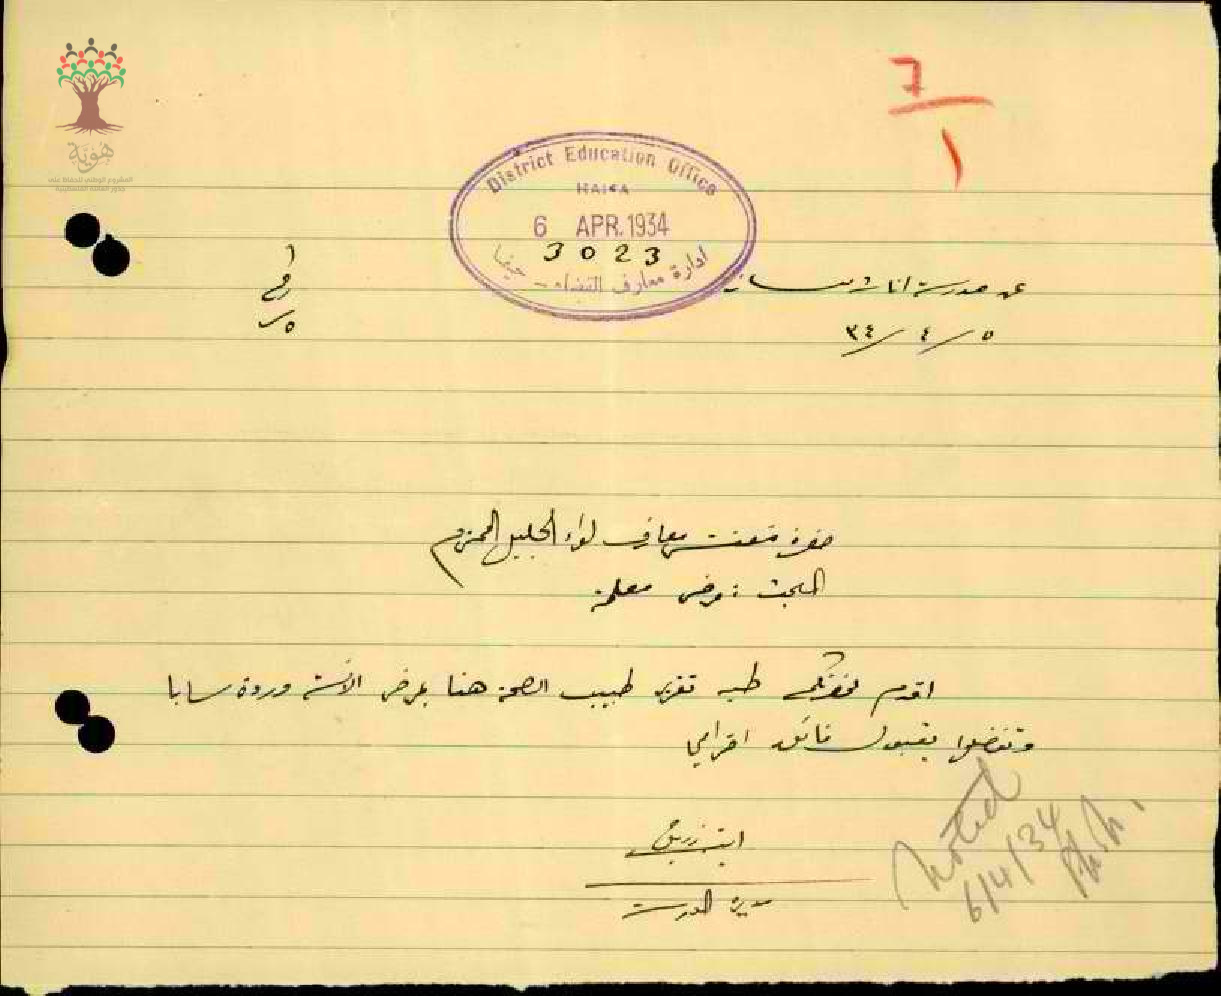 هوية
المشروع الوطني للحفاظ على
جذور العائلة الفلسطينية
7
1
District Education Office
HAIFA
6 APR. 1934
3023
ادارة معارف القضاء – حيفا
عن مدرسة اناث بيسان
٥/٤/٣٤
حضرة مفتش معارف لواء الجليل المحترم
البحث : مرض معلمة
اقدم لحضرتكم طيه تقرير طبيب الصحة هنا بمرض الآنسة وردة سابا
وتفضلوا بقبول فائق احترامي
مديرة المدرسة
Noted
6/4/34